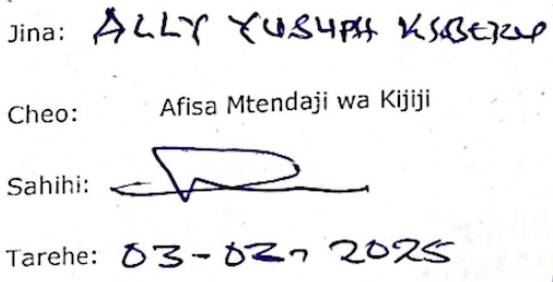 Jina: ALLY YUSUPH
Cheo: Afisa Mtendaji wa Kijiji
Sahihi:
Tarehe: 03-02-2025